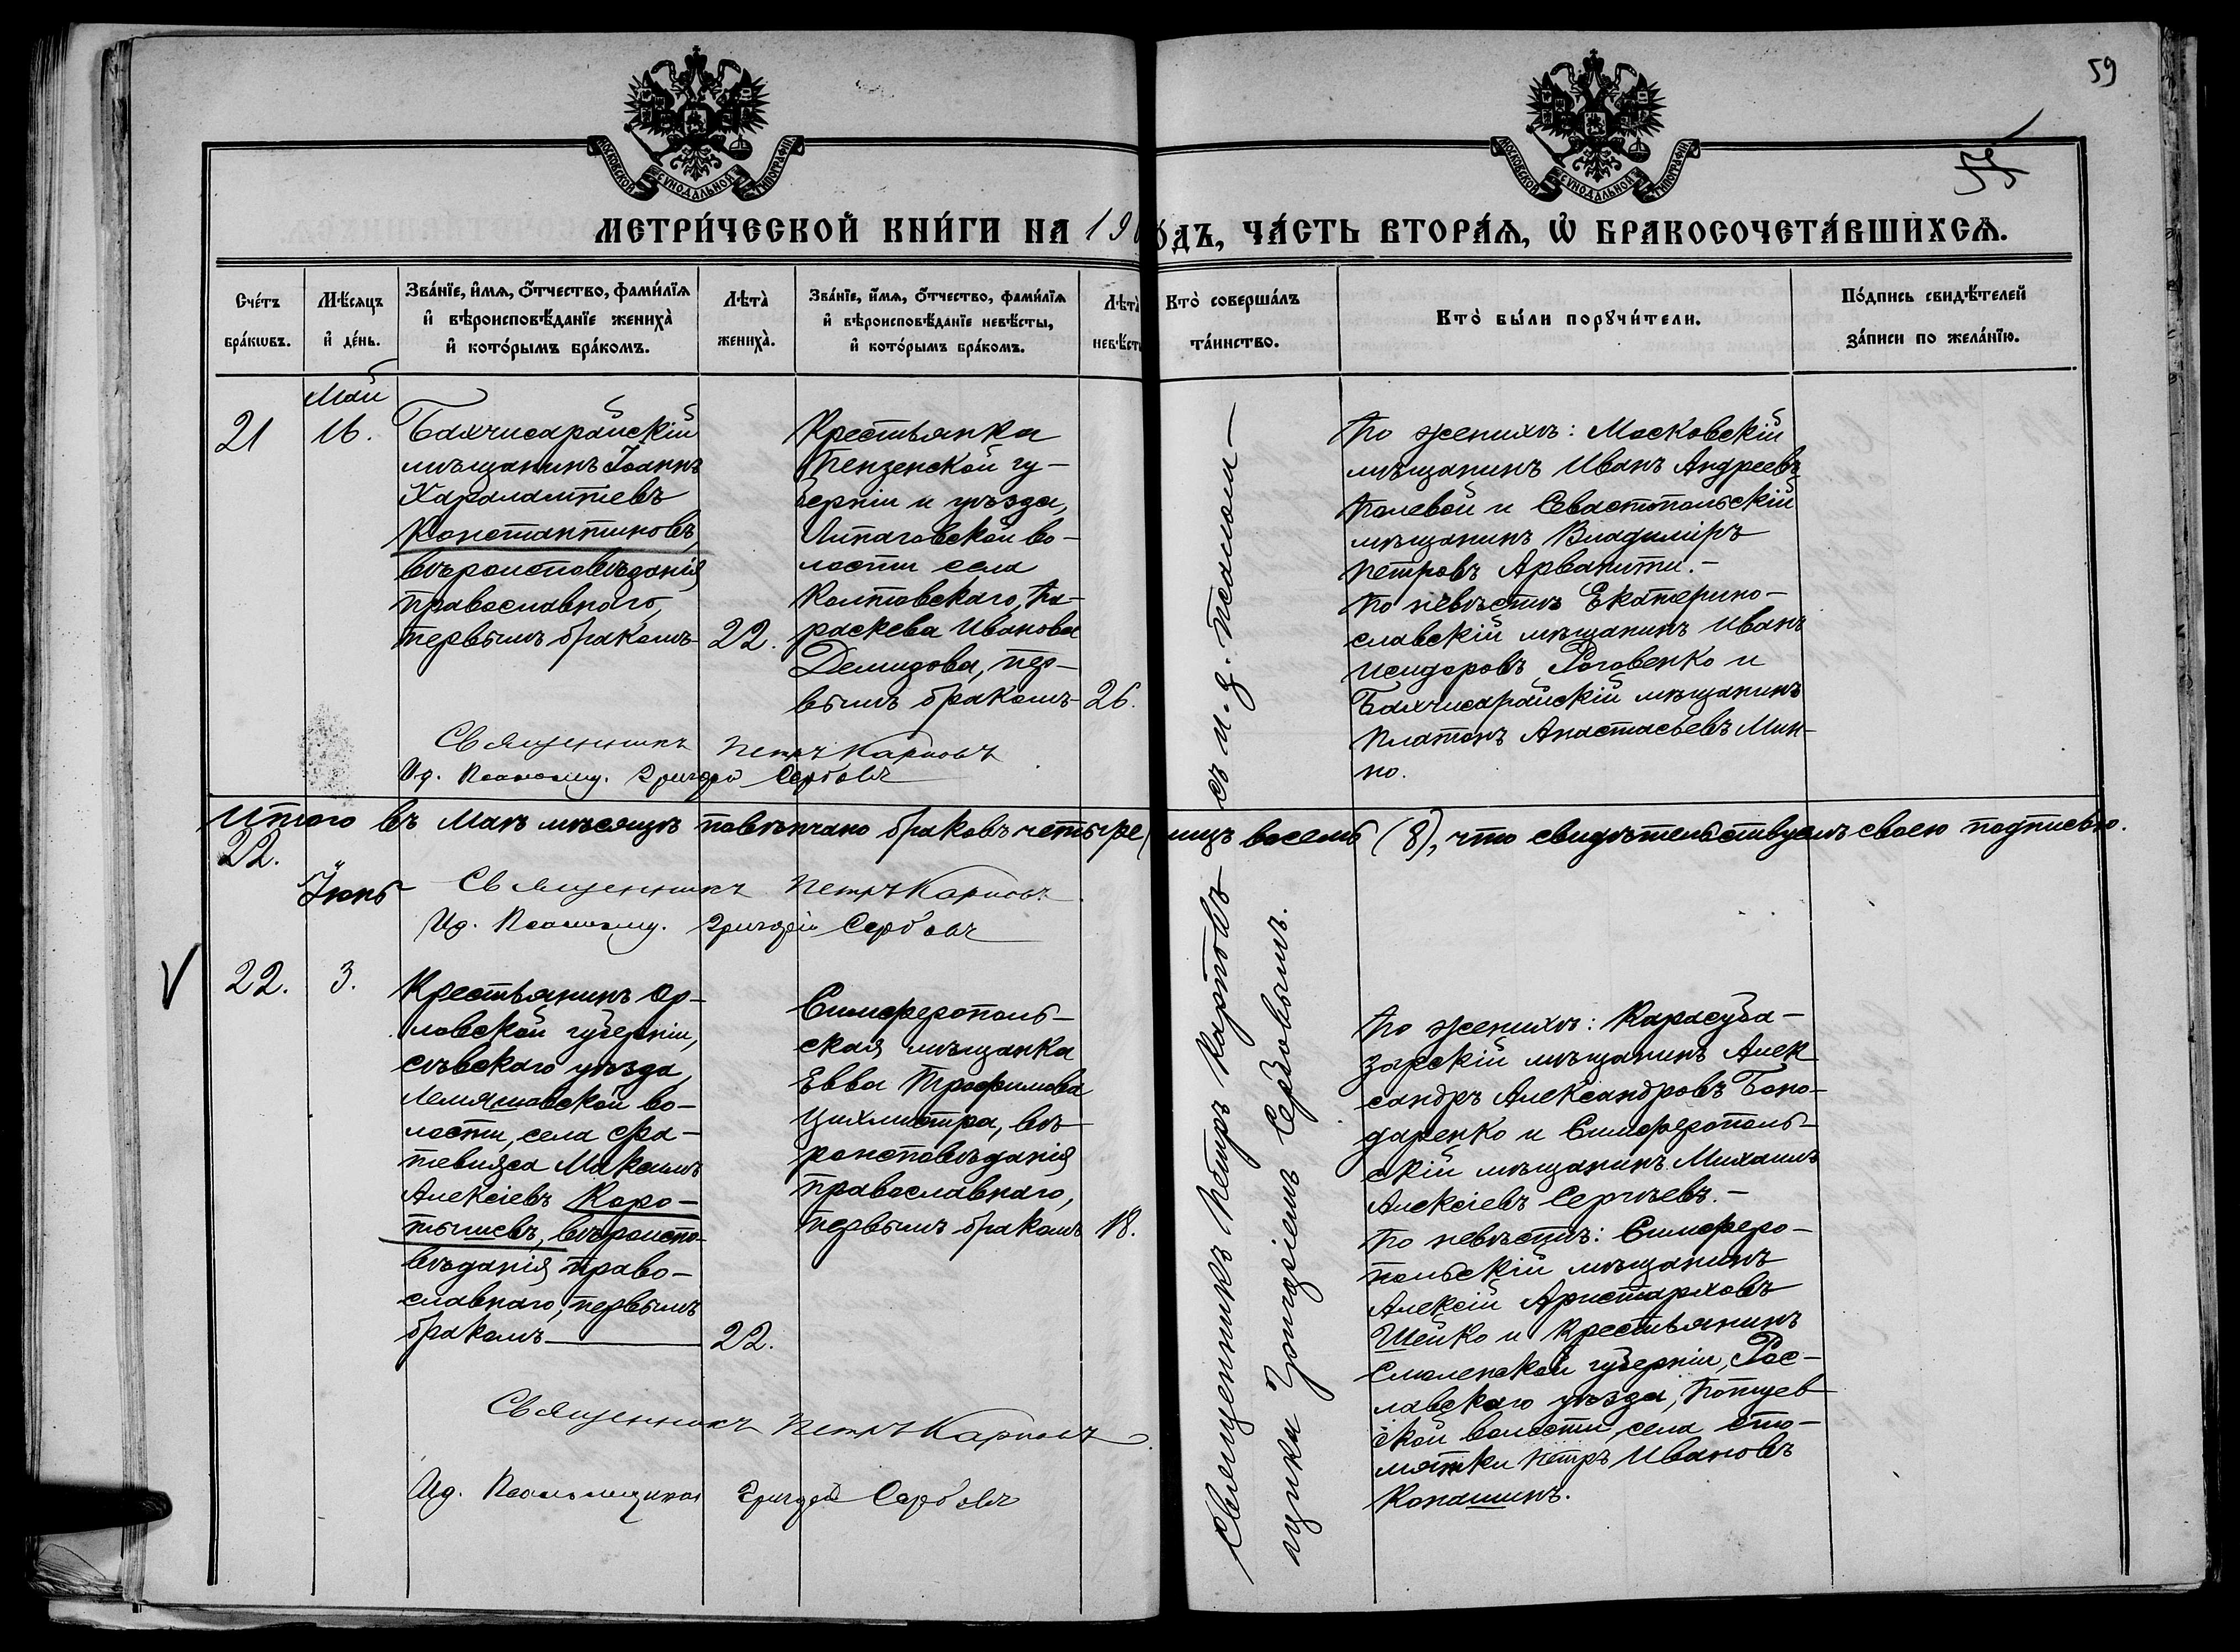 59
55
МОСКОВСКОЙ СѴНОДАЛЬНОЙ ТИПОГРАФІИ
МОСКОВСКОЙ СѴНОДАЛЬНОЙ ТИПОГРАФІИ
МЕТРИ́ЧЕСКОЙ КНИ́ГИ НА 190
ОДЪ, ЧА́СТЬ ВТОРА́Ѧ, Ѡ҆ БРАКОСОЧЕТА́ВШИХСѦ.
Сче́тъ
бра́кѡвъ.
Мѣ́сяцъ
и҆ де́нь.
Зва́нїе, и҆́мѧ, ѻ҆́тчество, фами́лїѧ
и҆ вѣроисповѣ́данїе жениха̀
и҆ кото́рымъ бра́комъ.
Лѣта̀
жениха̀.
Зва́нїе, и҆́мѧ, ѻ҆́тчество, фами́лїѧ
и҆ вѣроисповѣ́данїе невѣ́сты,
и҆ кото́рымъ бра́комъ.
Лѣта̀
невѣ́сты
Кто̀ соверша́лъ
та́инство.
Кто̀ бы́ли порꙋчи́тели.
По́дпись свидѣ́телей
за́писи по жела́нїю.
Май
21
16.
Бахчисарайскій
мѣщанинъ Іоаннъ
Харалампіевъ
Константиновъ,
вѣроисповѣданія
православнаго,
первымъ бракомъ
22.
Крестьянка
Пензенской гу-
берніи и уѣзда,
Липяговской во-
лости села
Колтовскаго, Па-
раскева Иванова
Демидова, пер-
вымъ бракомъ
26.
По женихѣ: Московскій
мѣщанинъ Иванъ Андреевъ
Полевой и Севастопольскій
мѣщанинъ Владиміръ
Петровъ Арванити.-
По невѣстѣ Екатерино-
славскій мѣщанинъ Иванъ
Исидоровъ Роговенко и
Бахчисарайскій мѣщанинъ
Платонъ Анастасьевъ Мин-
но.
Священникъ Петръ Карповъ
И.д. Псаломщ. Григорій Сербовъ
Итого въ Маѣ мѣсяцѣ повѣнчано браковъ четыре лицъ восемь (8), что свидѣтельствуемъ своею подписью.
22.
Іюнь
Священникъ Петръ Карповъ
И.д. Псаломщ. Григорій Сербовъ
Священникъ Петръ Карповъ съ и. д. псалом-
щика Григоріемъ Сербовымъ.
22.
3.
Крестьянинъ Ор-
ловской губерніи,
Сѣвскаго уѣзда,
Лемяшовской во-
лости, села
Максимъ
Алексіевъ Коро-
тышевъ, вѣроиспо-
вѣданія право-
славнаго, первымъ
бракомъ
22.
Симферополь-
ская мѣщанка
Евва Трофимова
Цихмистра, вѣ-
роисповѣданія
православнаго,
первымъ бракомъ
18.
По женихѣ: Карасуба-
зарскій мѣщанинъ Алек
сандръ Александровъ Бонo-
даренко и Симферополь-
скій мѣщанинъ Михаилъ
Алексіевъ Сергѣевъ.-
По невѣстѣ: Симферо-
польскій мѣщанинъ
Алексій Аристарховъ
Шейко и крестьянинъ
Смоленской губерніи, Рос-
лавскаго уѣзда,
ской волости, села
Петръ Ивановъ
Конашинъ.
Священникъ Петръ Карповъ
И.д. Псаломщика Григорій Сербовъ